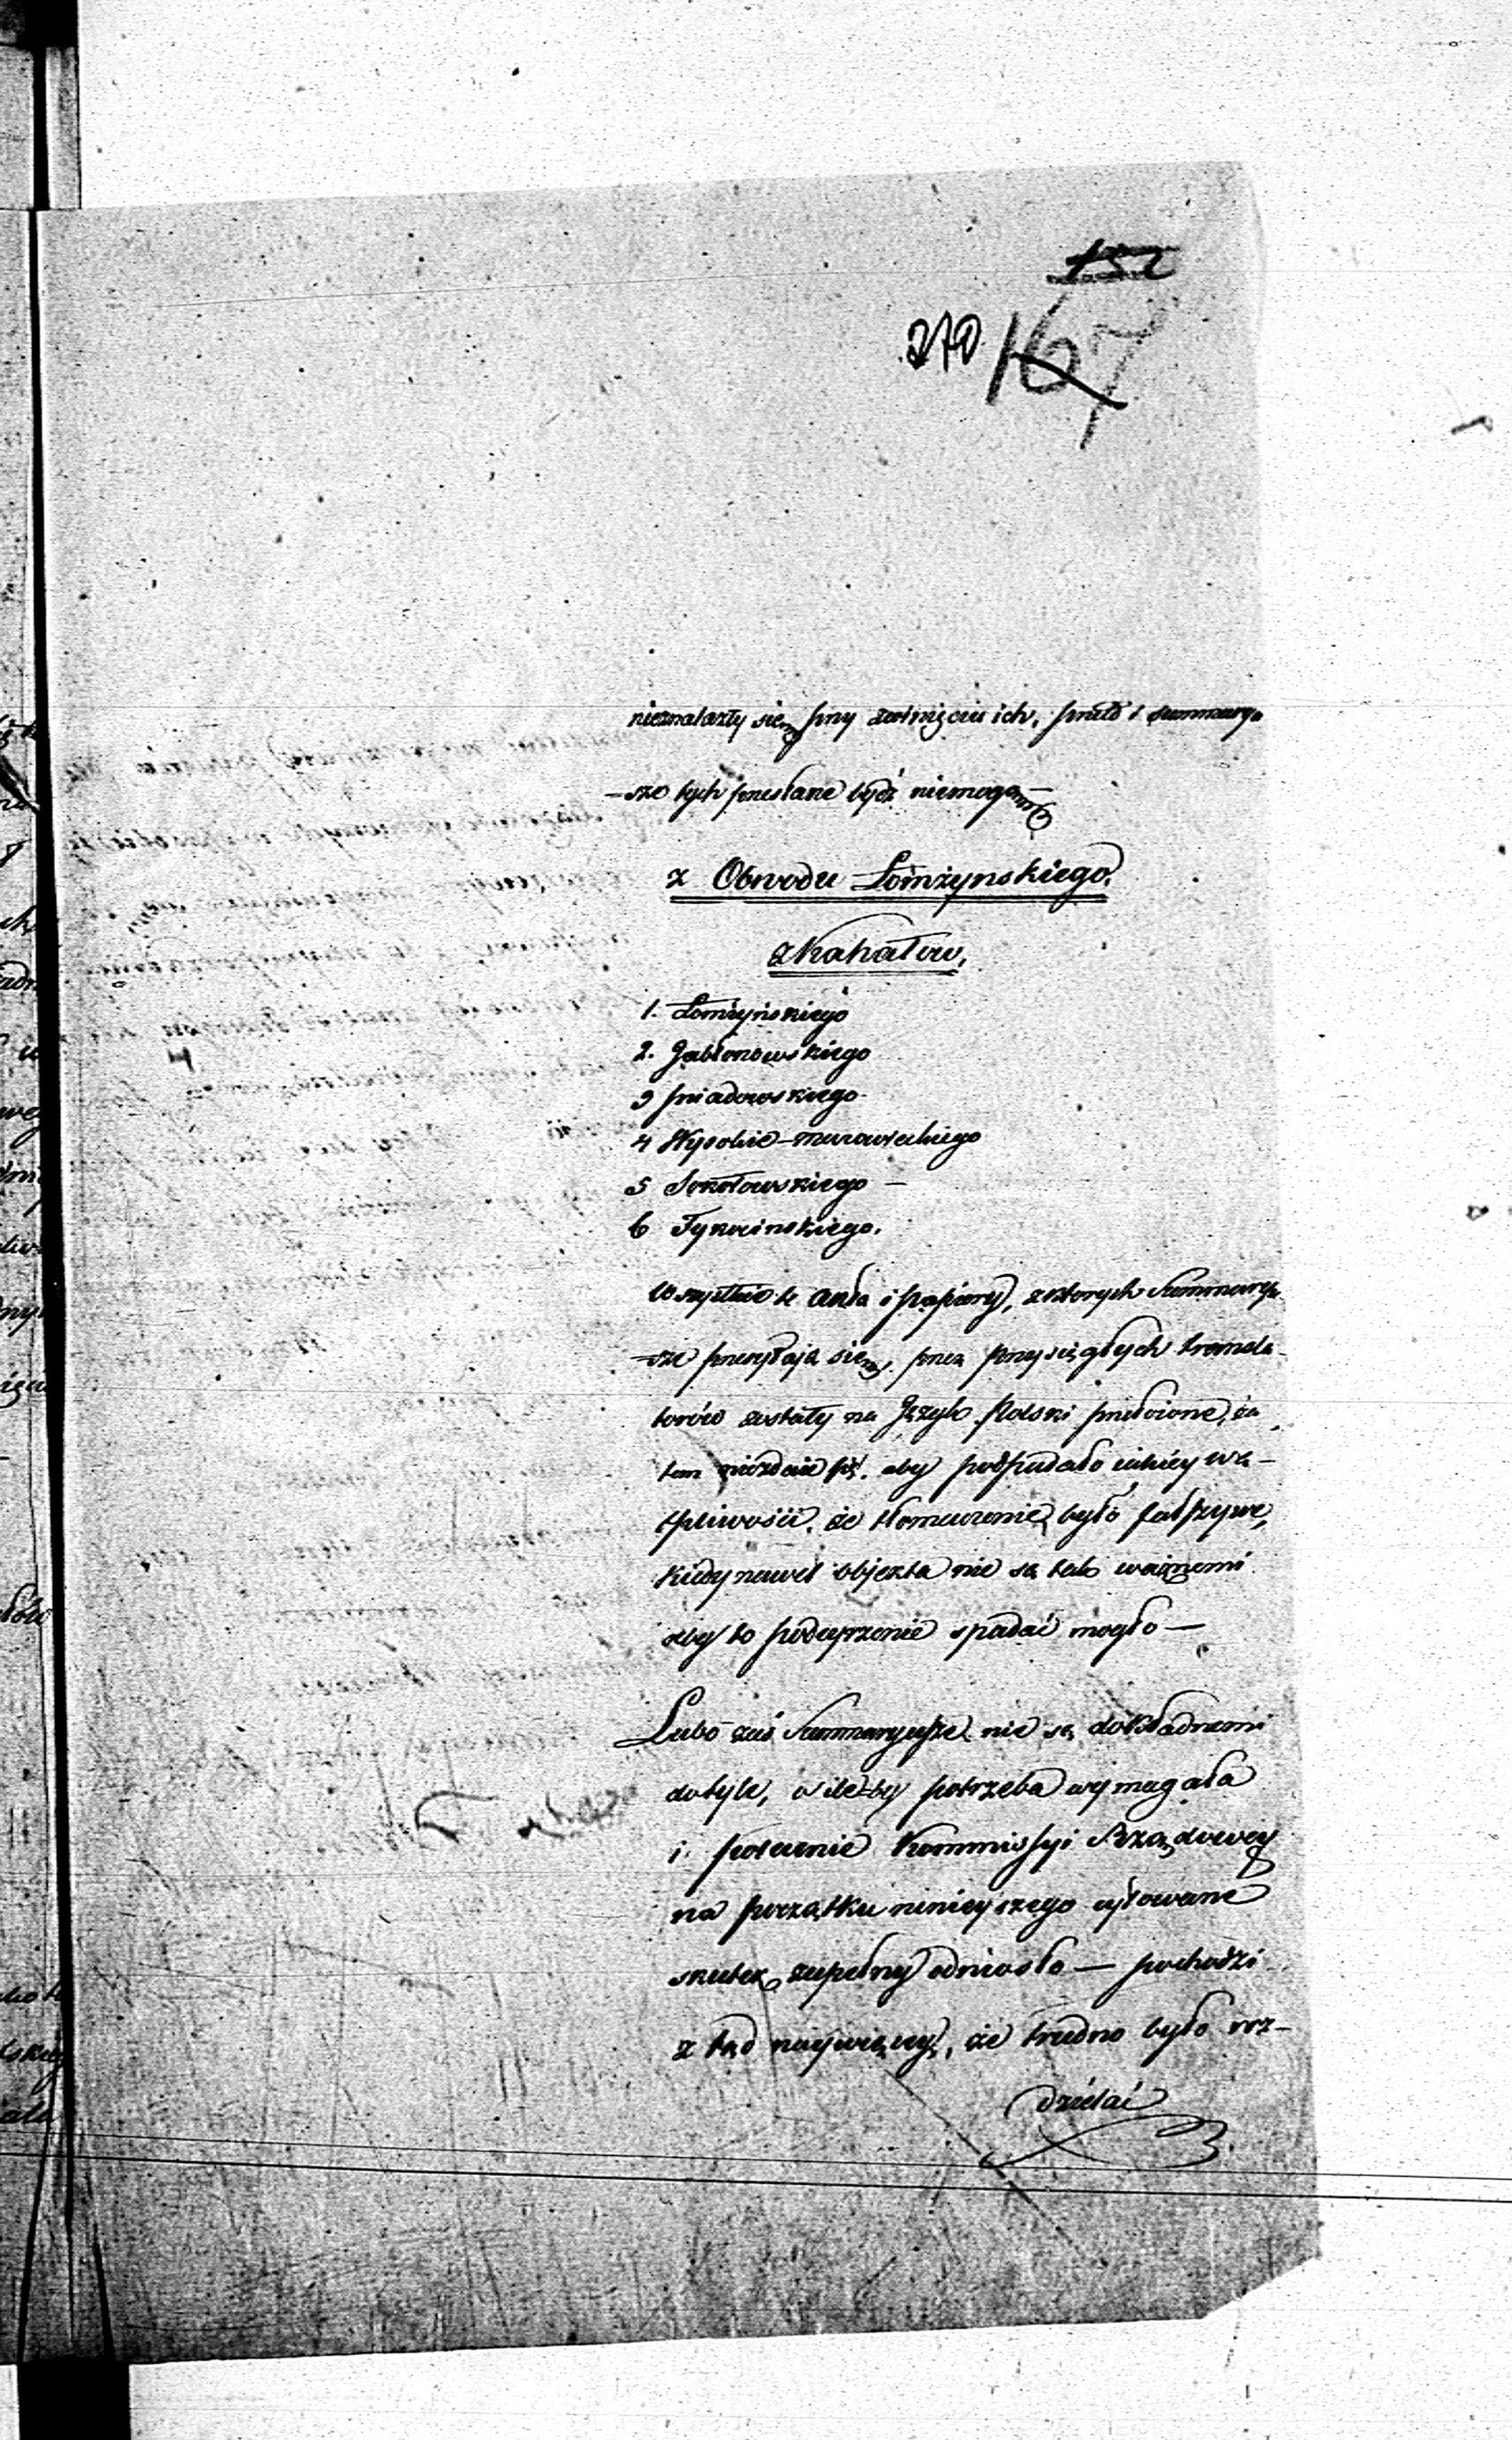 152
270 167
nieznalazły się przy zwinięciu ich, przeto i summary-
-sze tych przesłane bydź niemogą
z Obwodu Łomżynskiego.
z Kahałow,
1. Łomżyńskiego
2. Jabłonowskiego
3 Sniadowskiego
4 Wysokie-mazowieckiego
5 Sokołowskiego –
6 Tykocinskiego.
Wszystkie te akta i papiery, z ktorych Summaryu-
-sze przesyłają się, przez przysięgłych transla-
torów zostały na Język Polski przełożone, za
tem niezdaie się, aby podpadało iakiey wą-
tpliwości, że tłomaczenie było fałszywe,
kiedy nawet objekta nie są tak ważnemi
aby to podeyrzenie spadać mogło —
Lubo zaś Summaryusze nie są dokładnemi
do tyle, o ile by potrzeba wymagała
i polecenie Kommissyi Rządowey
na początku ninieyszego cytowane
skutek zupełny odniosło — pochodzi
z tąd naywięcey, że trudno było roz-
dzielać